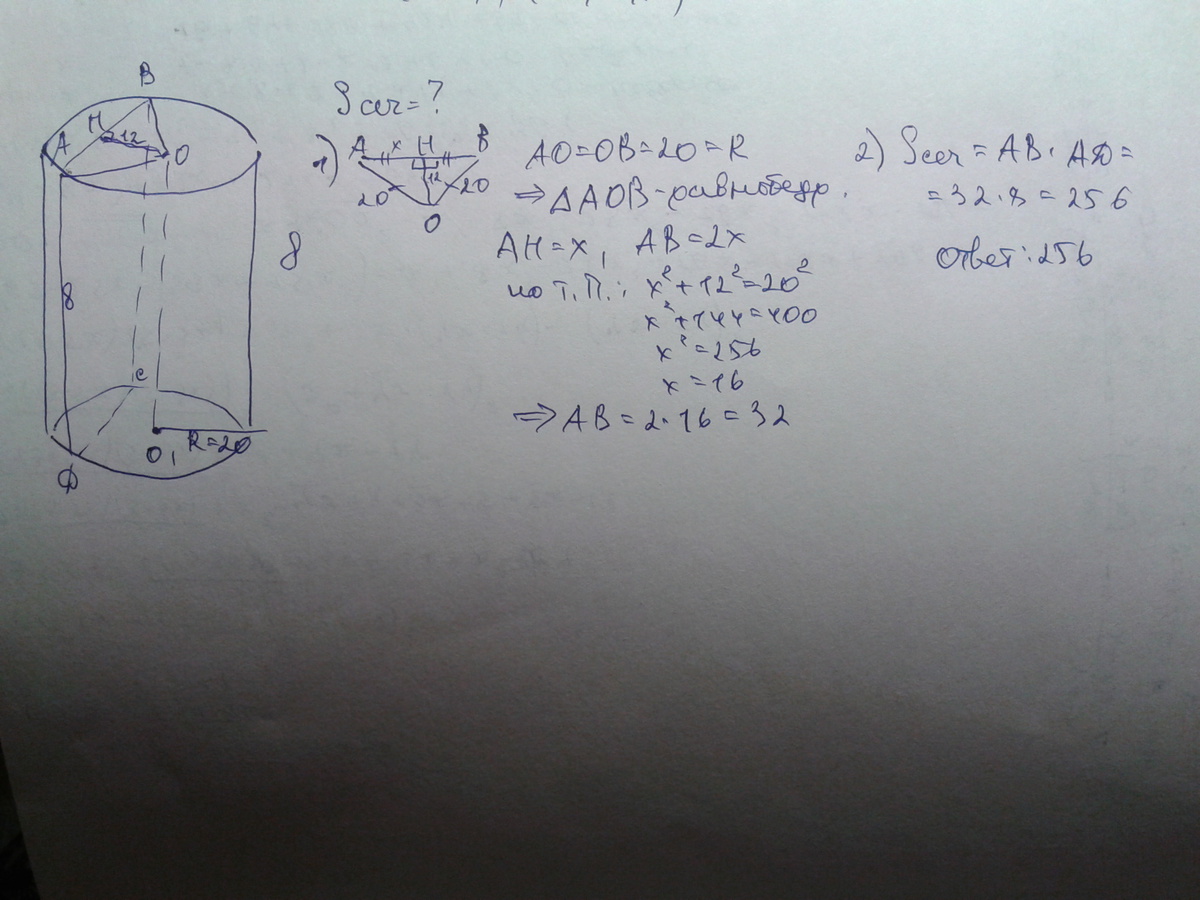 B
H
A
12
O
8
8
C
O₁
R=20
D
Sсеч=?
1) A x H B
20 12 20
O
AO=OB=20=R
⇒ △AOB-равнобедр.
AH=x, AB=2x
по т.П.: x²+12²=20²
x²+144=400
x²=256
x=16
⇒ AB=2·16=32
2) Sсеч=AB·AD=
=32·8=256
Ответ: 256